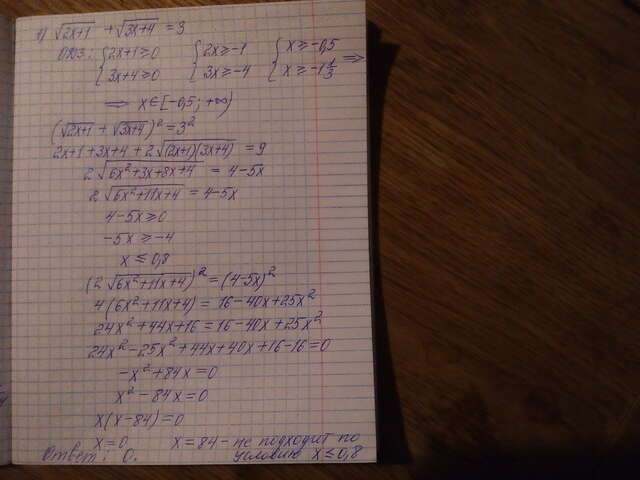 1) √2x+1 + √3x+4 = 3
ОДЗ: { 2x+1 ≥ 0 { 2x ≥ -1 { x ≥ -0,5
3x+4 ≥ 0 3x ≥ -4 x ≥ -1 1/3 ⇒
⇒ x ∈ [-0,5; +∞)
(√2x+1 + √3x+4)² = 3²
2x+1+3x+4+2√(2x+1)(3x+4) = 9
2√6x²+3x+8x+4 = 4-5x
2√6x²+11x+4 = 4-5x
4-5x ≥ 0
-5x ≥ -4
x ≤ 0,8
(2√6x²+11x+4)² = (4-5x)²
4(6x²+11x+4) = 16-40x+25x²
24x²+44x+16 = 16-40x+25x²
24x²-25x²+44x+40x+16-16=0
-x²+84x=0
x²-84x=0
x(x-84)=0
x=0 x=84 - не подходит по
условию x ≤ 0,8
Ответ: 0.